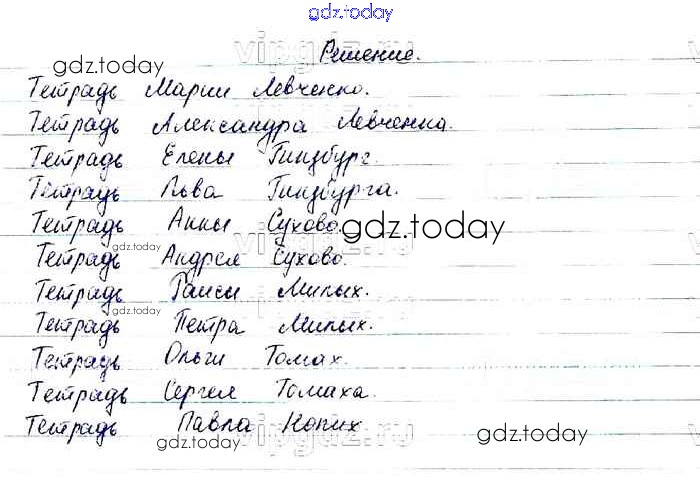 gdz.today
Решение.
gdz.today
Тетрадь Марии Левченко.
Тетрадь Александра Левченка.
Тетрадь Елены Гинзбург.
Тетрадь Льва Гинзбурга.
Тетрадь Анны Сухово.
gdz.today
gdz.today
Тетрадь Андрея Сухово.
Тетрадь Раисы Милых.
gdz.today
Тетрадь Петра Милых.
Тетрадь Ольги Томах.
Тетрадь Сергея Томаха.
Тетрадь Павла Копих
gdz.today
vipgdz.ru
gdz.today